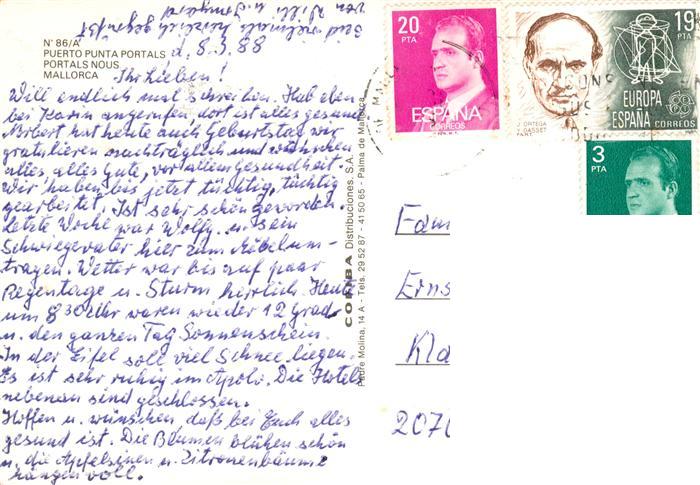 Nº 86/A
PUERTO PUNTA PORTALS
PORTALS NOUS
MALLORCA
d. 8.3.88
Ihr Lieben!
Will endlich mal schreiben. Hab eben
bei Karin angerufen, dort ist alles gesund
Norbert hat heute auch Geburtstag wir
gratulieren nachträglich und wünschen
alles alles Gute, vor allem Gesundheit.
Wir haben bis jetzt tüchtig, tüchtig
gearbeitet. Ist sehr schön geworden.
Letzte Woche war Wolfg. u. sein
Schwiegervater hier zum Möbelum-
tragen. Wetter war bis auf paar
Regentage u. Sturm herrlich. Heute
um 8 30 Uhr waren wieder 12 Grad
u. den ganzen Tag Sonnenschein.
In der Eifel soll viel Schnee liegen.
Es ist sehr ruhig im Apolo. Die Hotels
nebenan sind geschlossen.
Hoffen u. wünschen, daß bei Euch alles
gesund ist. Die Blumen blühen schön
u. die Apfelsinen u. Zitronenbäume
hängen voll.
Seid vielmals herzlich gegrüßt
von Willi u. Irmgard
COMBA Distribuciones, S.A.
Pedro Molina, 14 A - Tels. 29 52 87 - 41 50 65 - Palma de Mallorca
20
PTA
ESPAÑA
CORREOS
19
PTA
J. ORTEGA
Y GASSET
EUROPA
ESPAÑA
CORREOS
3
PTA
Fam
Erns
Kla
2070